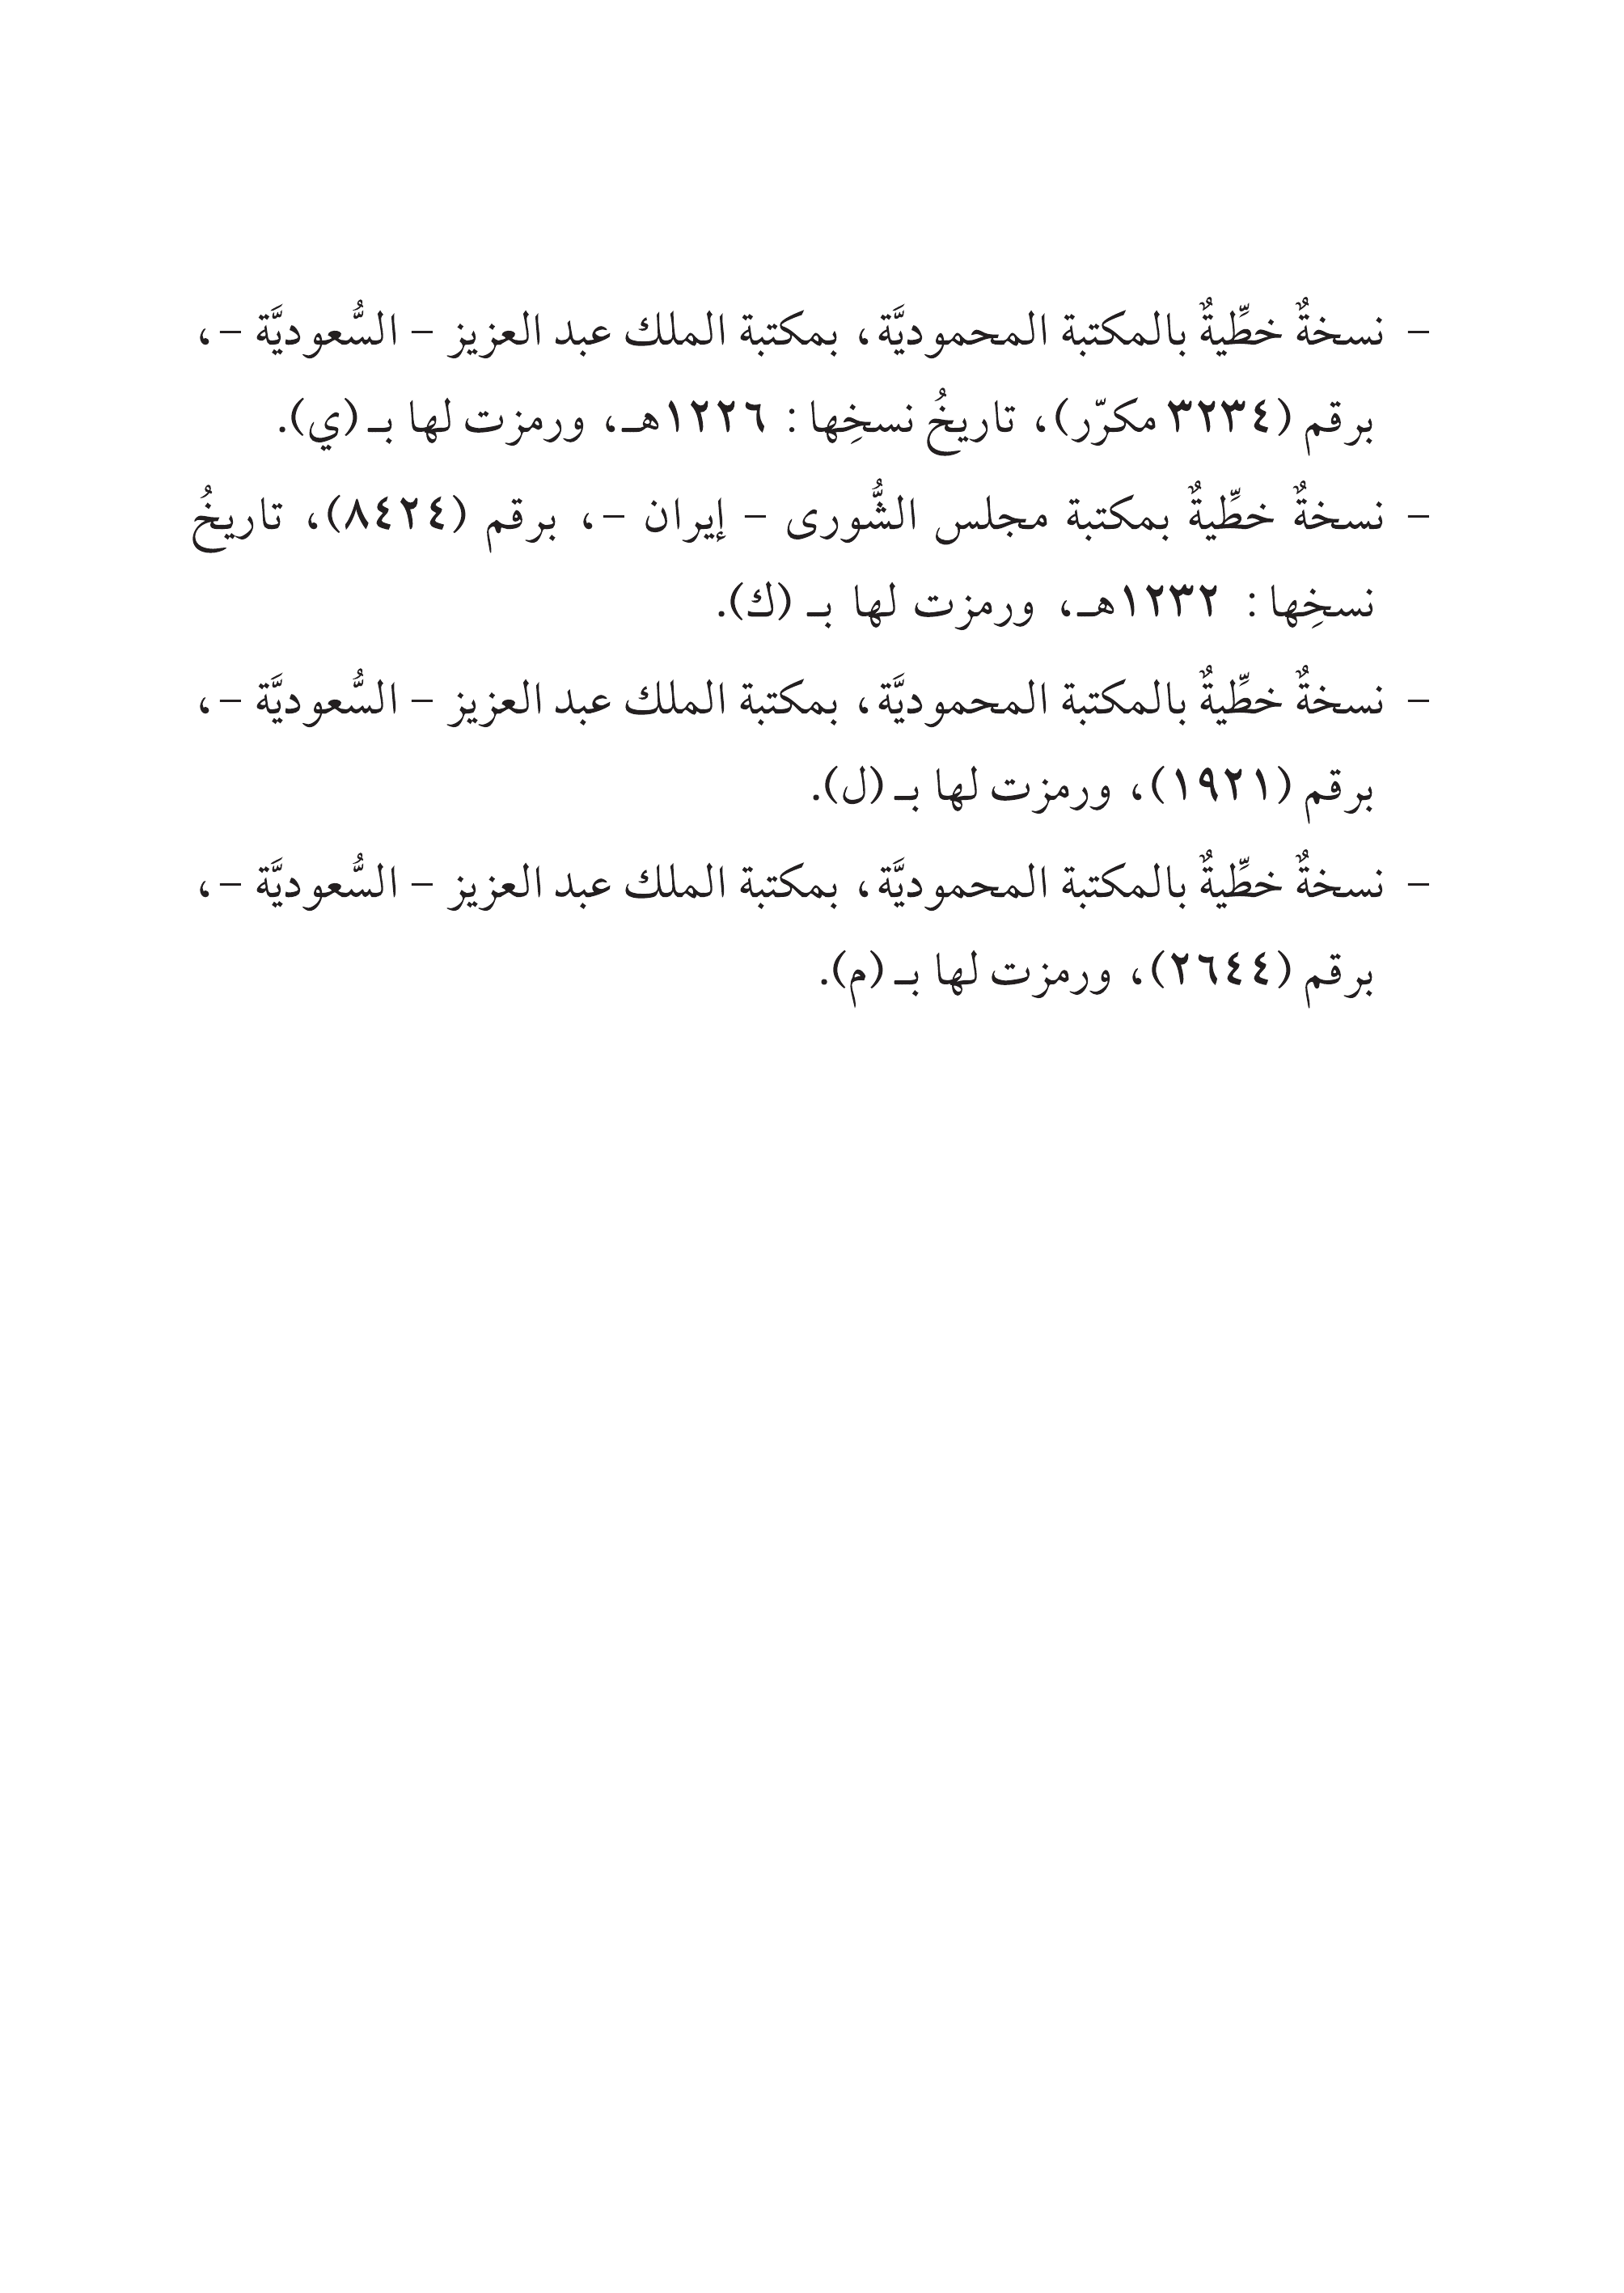 - نسخةٌ خطِّيةٌ بالمكتبة المحموديَّة، بمكتبة الملك عبد العزيز - السُّعوديَّة -،
برقم (٣٢٣٤ مكرّر)، تاريخُ نسخِها: ١٢٢٦هـ، ورمزت لها بـ (ي).
- نسخةٌ خطِّيةٌ بمكتبة مجلس الشُّورى - إيران -، برقم (٨٤٢٤)، تاريخُ
نسخِها: ١٢٣٢هـ، ورمزت لها بـ (ك).
- نسخةٌ خطِّيةٌ بالمكتبة المحموديَّة، بمكتبة الملك عبد العزيز - السُّعوديَّة -،
برقم (١٩٢١)، ورمزت لها بـ (ل).
- نسخةٌ خطِّيةٌ بالمكتبة المحموديَّة، بمكتبة الملك عبد العزيز - السُّعوديَّة -،
برقم (٢٦٤٤)، ورمزت لها بـ (م).